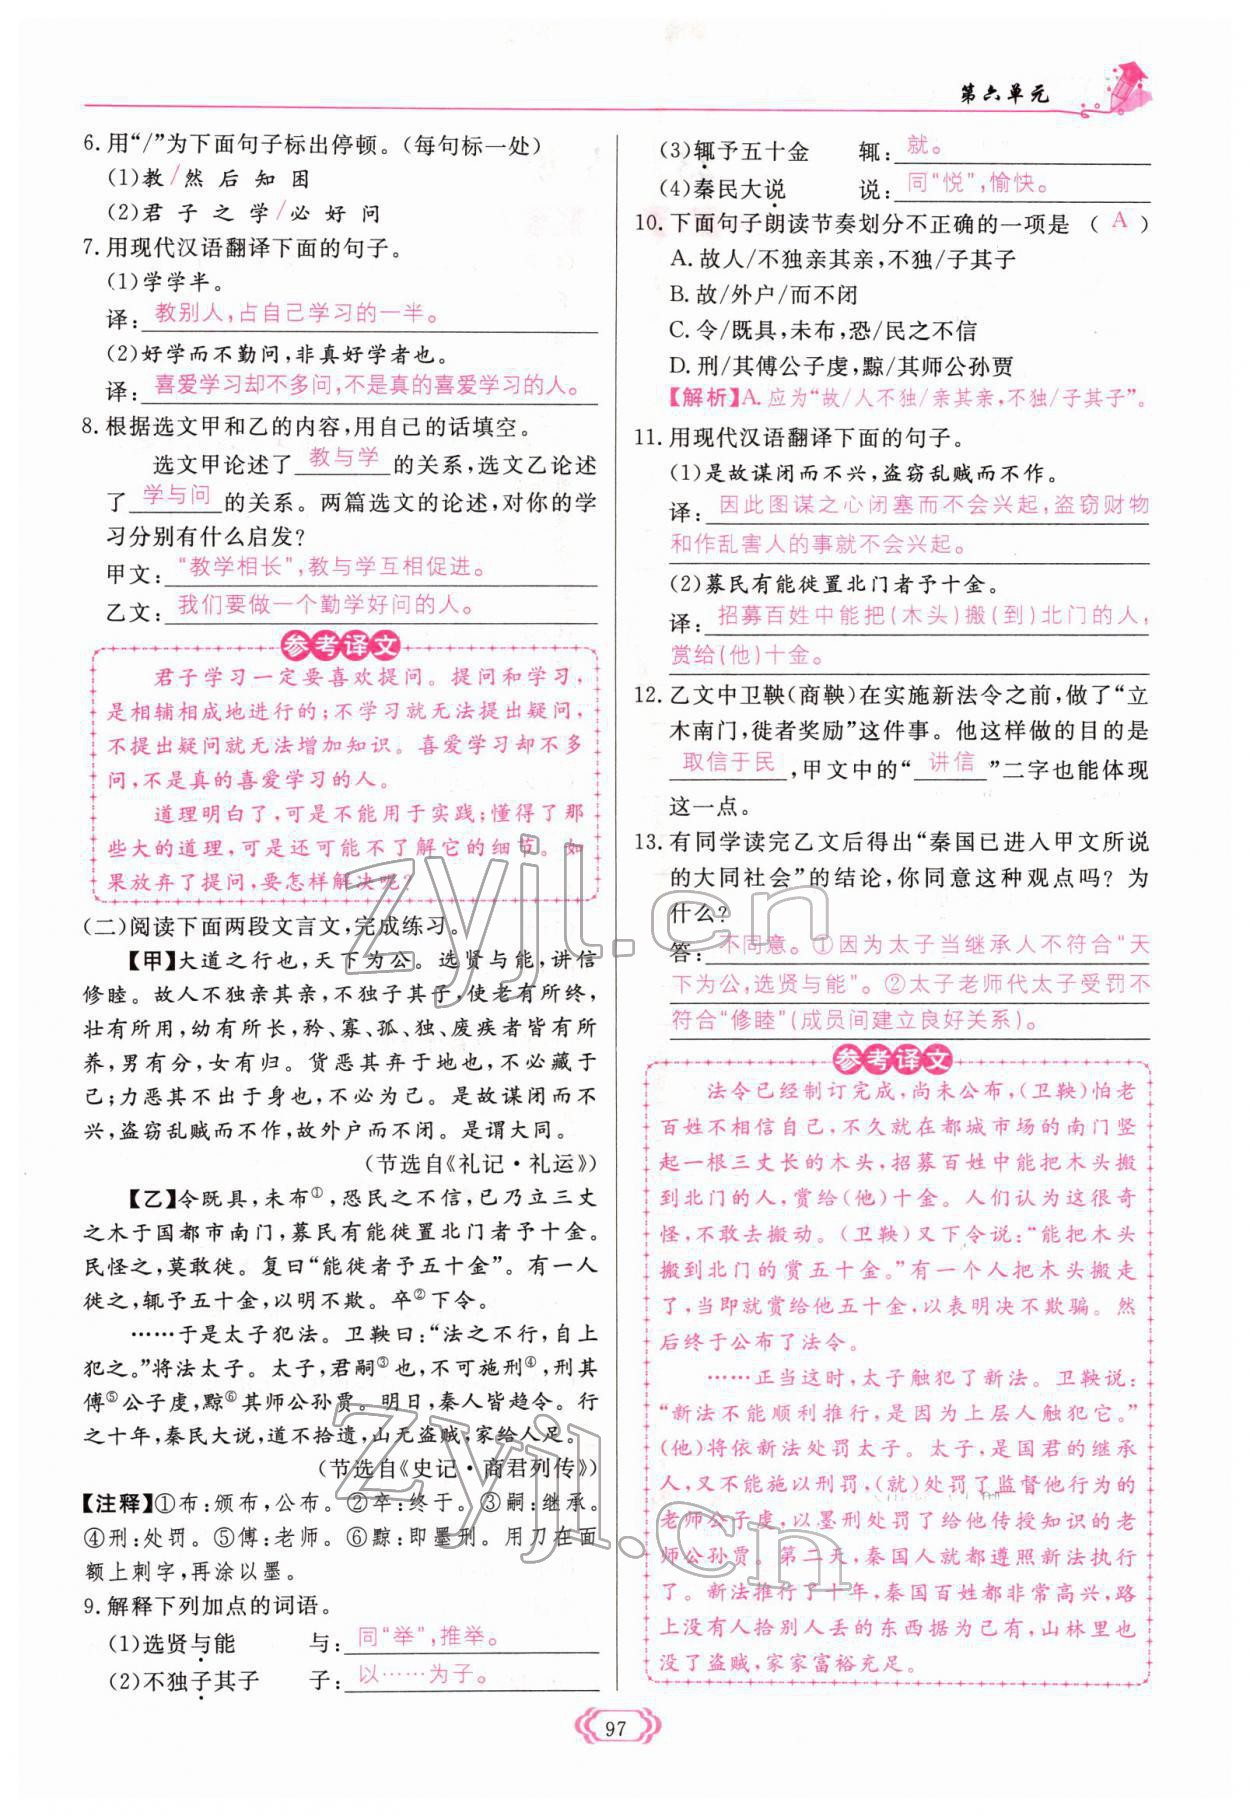 第六单元
6. 用“/”为下面句子标出停顿。(每句标一处)
(1)教/然后知困
(2)君子之学/必好问
7. 用现代汉语翻译下面的句子。
(1)学学半。
译: 教别人,占自己学习的一半。
(2)好学而不勤问,非真好学者也。
译: 喜爱学习却不多问,不是真的喜爱学习的人。
8. 根据选文甲和乙的内容,用自己的话填空。
选文甲论述了 教与学 的关系,选文乙论述
了 学与问 的关系。两篇选文的论述,对你的学
习分别有什么启发?
甲文: “教学相长”,教与学互相促进。
乙文: 我们要做一个勤学好问的人。
参考译文
君子学习一定要喜欢提问。提问和学习,
是相辅相成地进行的;不学习就无法提出疑问,
不提出疑问就无法增加知识。喜爱学习却不多
问,不是真的喜爱学习的人。
道理明白了,可是不能用于实践;懂得了那
些大的道理,可是还可能不了解它的细节。如
果放弃了提问,要怎样解决呢?
(二)阅读下面两段文言文,完成练习。
【甲】大道之行也,天下为公。选贤与能,讲信
修睦。故人不独亲其亲,不独子其子,使老有所终,
壮有所用,幼有所长,矜、寡、孤、独、废疾者皆有所
养,男有分,女有归。货恶其弃于地也,不必藏于
己;力恶其不出于身也,不必为己。是故谋闭而不
兴,盗窃乱贼而不作,故外户而不闭。是谓大同。
(节选自《礼记·礼运》)
【乙】令既具,未布①,恐民之不信,已乃立三丈
之木于国都市南门,募民有能徙置北门者予十金。
民怪之,莫敢徙。复曰“能徙者予五十金”。有一人
徙之,辄予五十金,以明不欺。卒②下令。
……于是太子犯法。卫鞅曰:“法之不行,自上
犯之。”将法太子。太子,君嗣③也,不可施刑④,刑其
傅⑤公子虔,黥⑥其师公孙贾。明日,秦人皆趋令。行
之十年,秦民大说,道不拾遗,山无盗贼,家给人足。
(节选自《史记·商君列传》)
【注释】①布:颁布,公布。②卒:终于。③嗣:继承。
④刑:处罚。⑤傅:老师。⑥黥:即墨刑。用刀在面
额上刺字,再涂以墨。
9. 解释下列加点的词语。
(1)选贤与能 与: 同“举”,推举。
(2)不独子其子 子: 以……为子。
(3)辄予五十金 辄: 就。
(4)秦民大说 说: 同“悦”,愉快。
10. 下面句子朗读节奏划分不正确的一项是 ( A )
A. 故人/不独亲其亲,不独/子其子
B. 故/外户/而不闭
C. 令/既具,未布,恐/民之不信
D. 刑/其傅公子虔,黥/其师公孙贾
【解析】A. 应为“故/人不独/亲其亲,不独/子其子”。
11. 用现代汉语翻译下面的句子。
(1)是故谋闭而不兴,盗窃乱贼而不作。
译: 因此图谋之心闭塞而不会兴起,盗窃财物
和作乱害人的事就不会兴起。
(2)募民有能徙置北门者予十金。
译: 招募百姓中能把(木头)搬(到)北门的人,
赏给(他)十金。
12. 乙文中卫鞅(商鞅)在实施新法令之前,做了“立
木南门,徙者奖励”这件事。他这样做的目的是
取信于民 ,甲文中的“ 讲信 ”二字也能体现
这一点。
13. 有同学读完乙文后得出“秦国已进入甲文所说
的大同社会”的结论,你同意这种观点吗?为
什么?
答: 不同意。①因为太子当继承人不符合“天
下为公,选贤与能”。②太子老师代太子受罚不
符合“修睦”(成员间建立良好关系)。
参考译文
法令已经制订完成,尚未公布,(卫鞅)怕老
百姓不相信自己,不久就在都城市场的南门竖
起一根三丈长的木头,招募百姓中能把木头搬
到北门的人,赏给(他)十金。人们认为这很奇
怪,不敢去搬动。(卫鞅)又下令说:“能把木头
搬到北门的赏五十金。”有一个人把木头搬走
了,当即就赏给他五十金,以表明决不欺骗。然
后终于公布了法令。
……正当这时,太子触犯了新法。卫鞅说:
“新法不能顺利推行,是因为上层人触犯它。”
(他)将依新法处罚太子。太子,是国君的继承
人,又不能施以刑罚,(就)处罚了监督他行为的
老师公子虔,以墨刑处罚了给他传授知识的老
师公孙贾。第二天,秦国人就都遵照新法执行
了。新法推行了十年,秦国百姓都非常高兴,路
上没有人拾别人丢的东西据为己有,山林里也
没了盗贼,家家富裕充足。
97
zyjl.cn
zyjl.cn